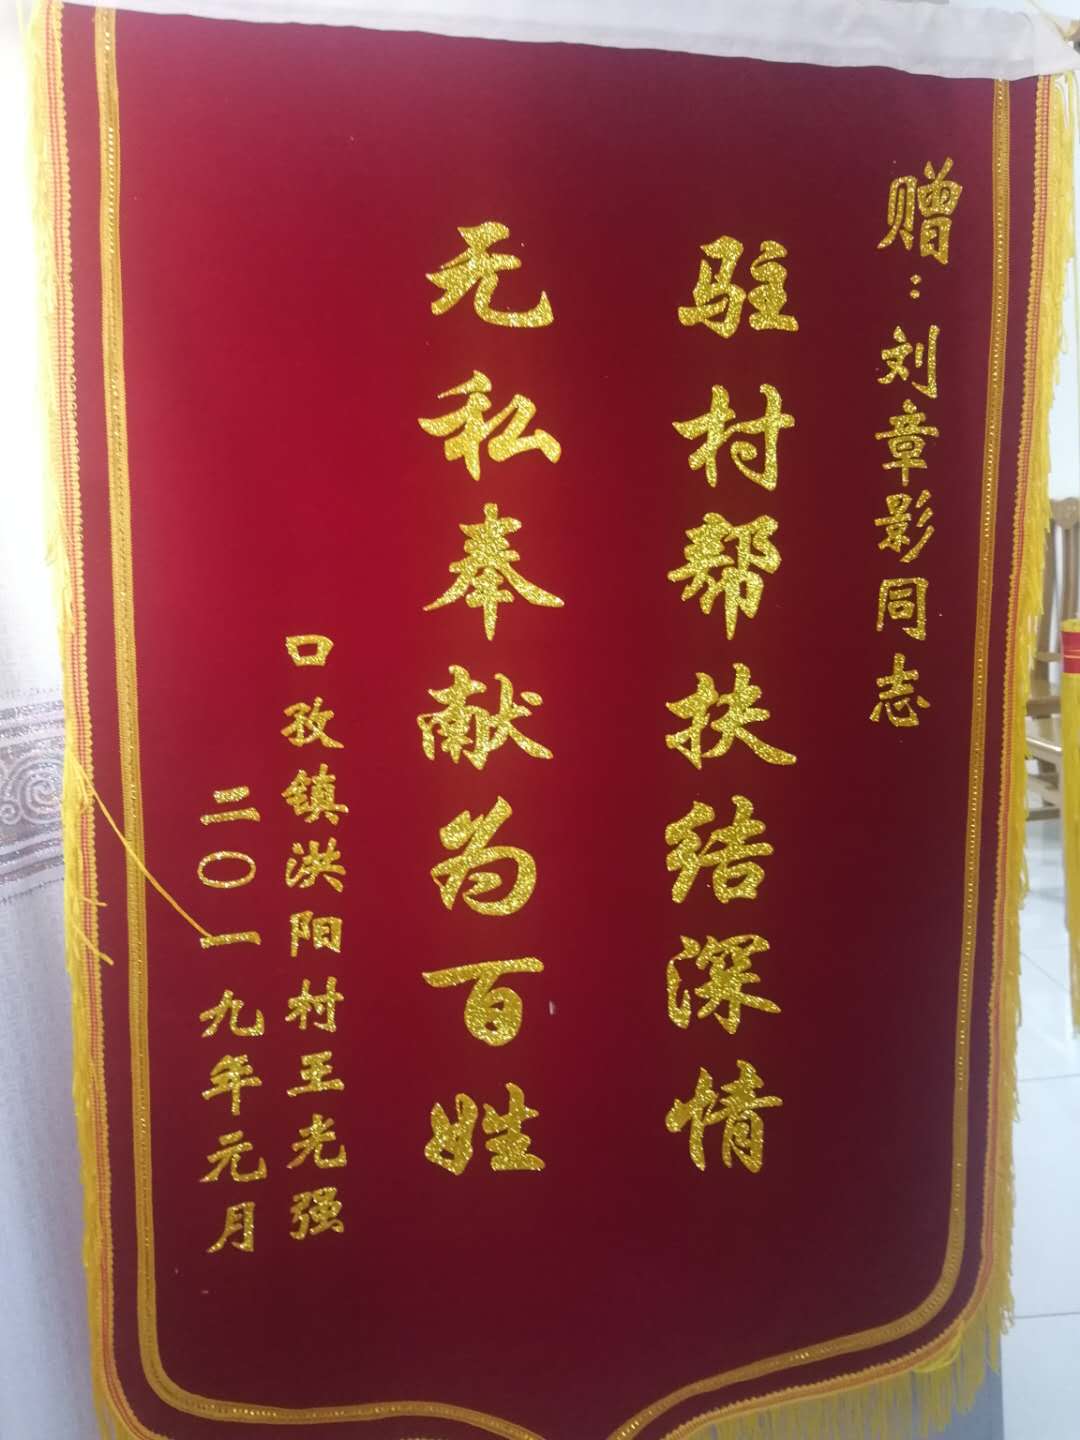 赠:刘章影同志
驻村帮扶结深情
无私奉献为百姓
口孜镇洪阳村王光强
二〇一九年元月